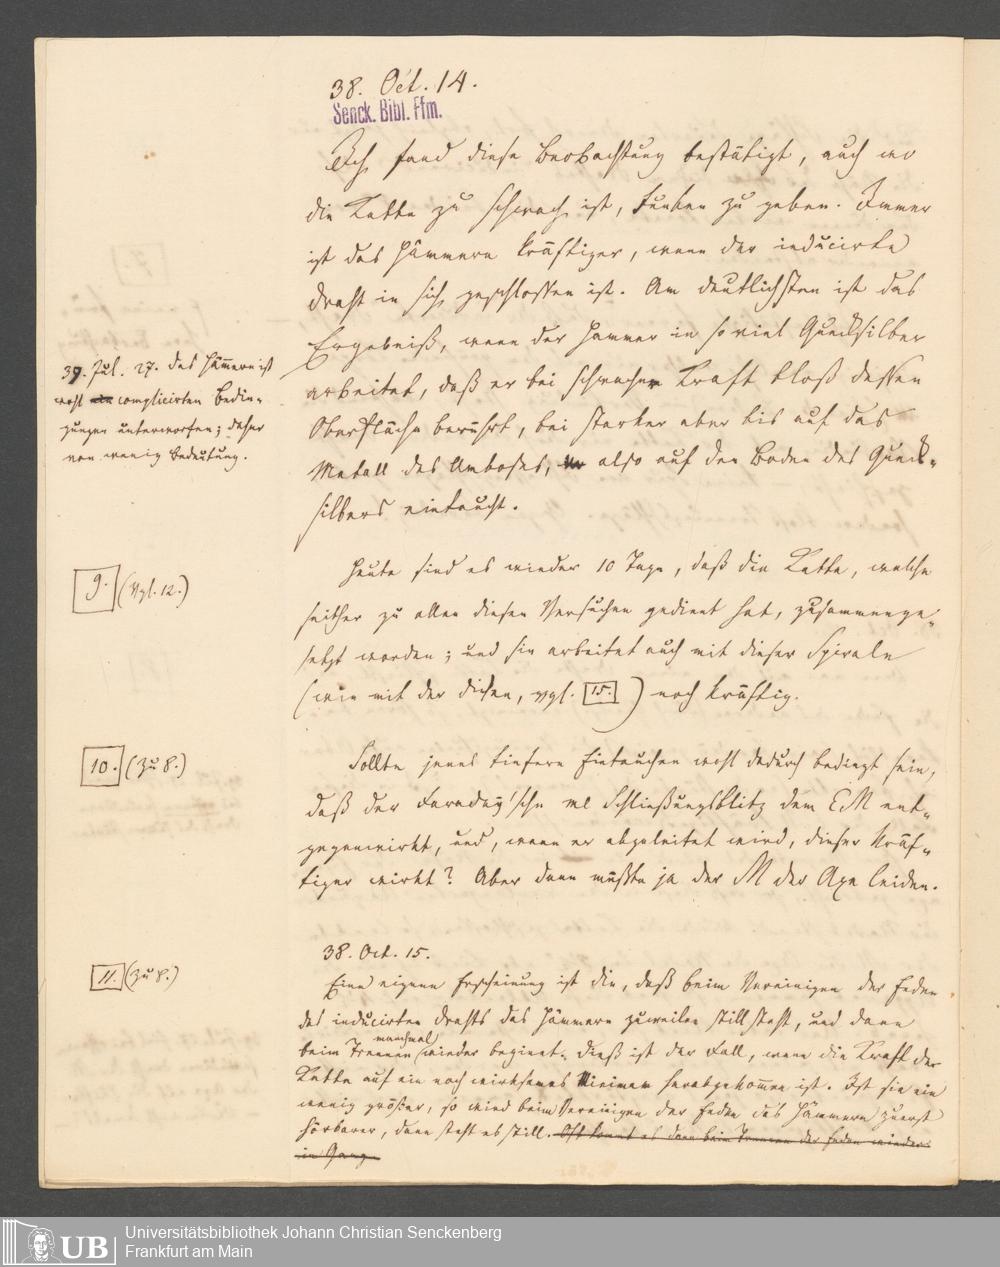 38. Oct. 14.
Senck. Bibl. Ffm.
Ich fand diese Beobachtung bestätigt, auch wo
die Kette zu schwach ist, Funken zu geben. Immer
ist das Hämmern kräftiger, wenn der inducirte
Draht in sich geschlossen ist. Am deutlichsten ist das
Ergebniß, wenn der Hammer in so viel Quecksilber
arbeitet, daß er bei schwacher Kraft bloß dessen
Oberfläche berührt, bei starker aber bis auf das
Metall des Amboses, also auf den Boden des Queck-
silbers eintaucht.
39. Jul. 27. das Hämmern ist
wohl complicirten Bedin-
gungen unterworfen; daher
von wenig Bedeutung.
9. (Vgl. 12.)
Heute sind es wieder 10 Tage, daß die Kette, welche
seither zu allen diesen Versuchen gedient hat, zusammenge-
setzt worden; und sie arbeitet auch mit dieser Spirale
(wie mit der dicken, vgl. 15.) noch kräftig.
10. (Zu 8.)
Sollte jenes tiefere Eintauchen wohl dadurch bedingt sein,
daß der Faraday'sche Schließungsblitz dem EM ent-
gegenwirkt, und, wenn er abgeleitet wird, dieser kräf-
tiger wirkt? Aber dann müßte ja der M der Axe leiden.
38. Oct. 15.
11. (Zu 8.)
Eine eigene Erscheinung ist die, daß beim Vereinigen der Enden
des inducirten Drahts das Hämmern zuweilen still steht, und dann
beim Trennen manchmal wieder beginnt. Dieß ist der Fall, wenn die Kraft der
Kette auf ein noch wirksames Minimum herabgekommen ist. Ist sie ein
wenig größer, so wird beim Vereinigen der Enden das Hämmern zuerst
hörbarer, dann steht es still. Oft kommt es dann beim Trennen der Enden wieder
in Gang.
UB
Universitätsbibliothek Johann Christian Senckenberg
Frankfurt am Main